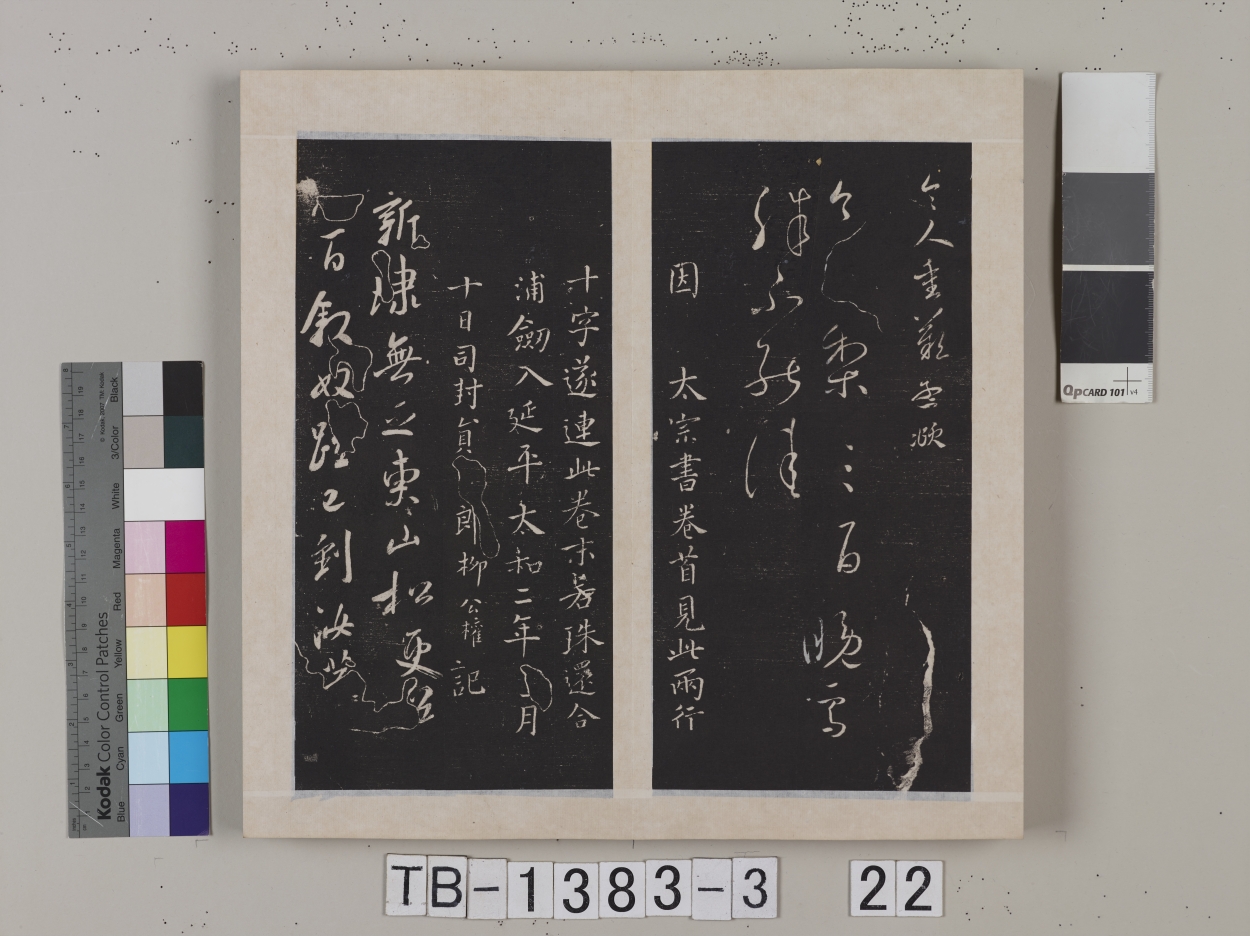 今人重歎
今送梨三百晚雪
殊不能佳
因太宗書卷首見此兩行
十字遂連此卷末若珠還合
浦劒入延平太和二年月
十日司封員郎柳公權記
新埭無乏東山松更
百敘奴已到汝
TB-1383-3 22
Kodak Color Control Patches
© Kodak, 2007 TM: Kodak
Blue Cyan Green Yellow Red Magenta White 3/Color Black
QPCARD 101 v4